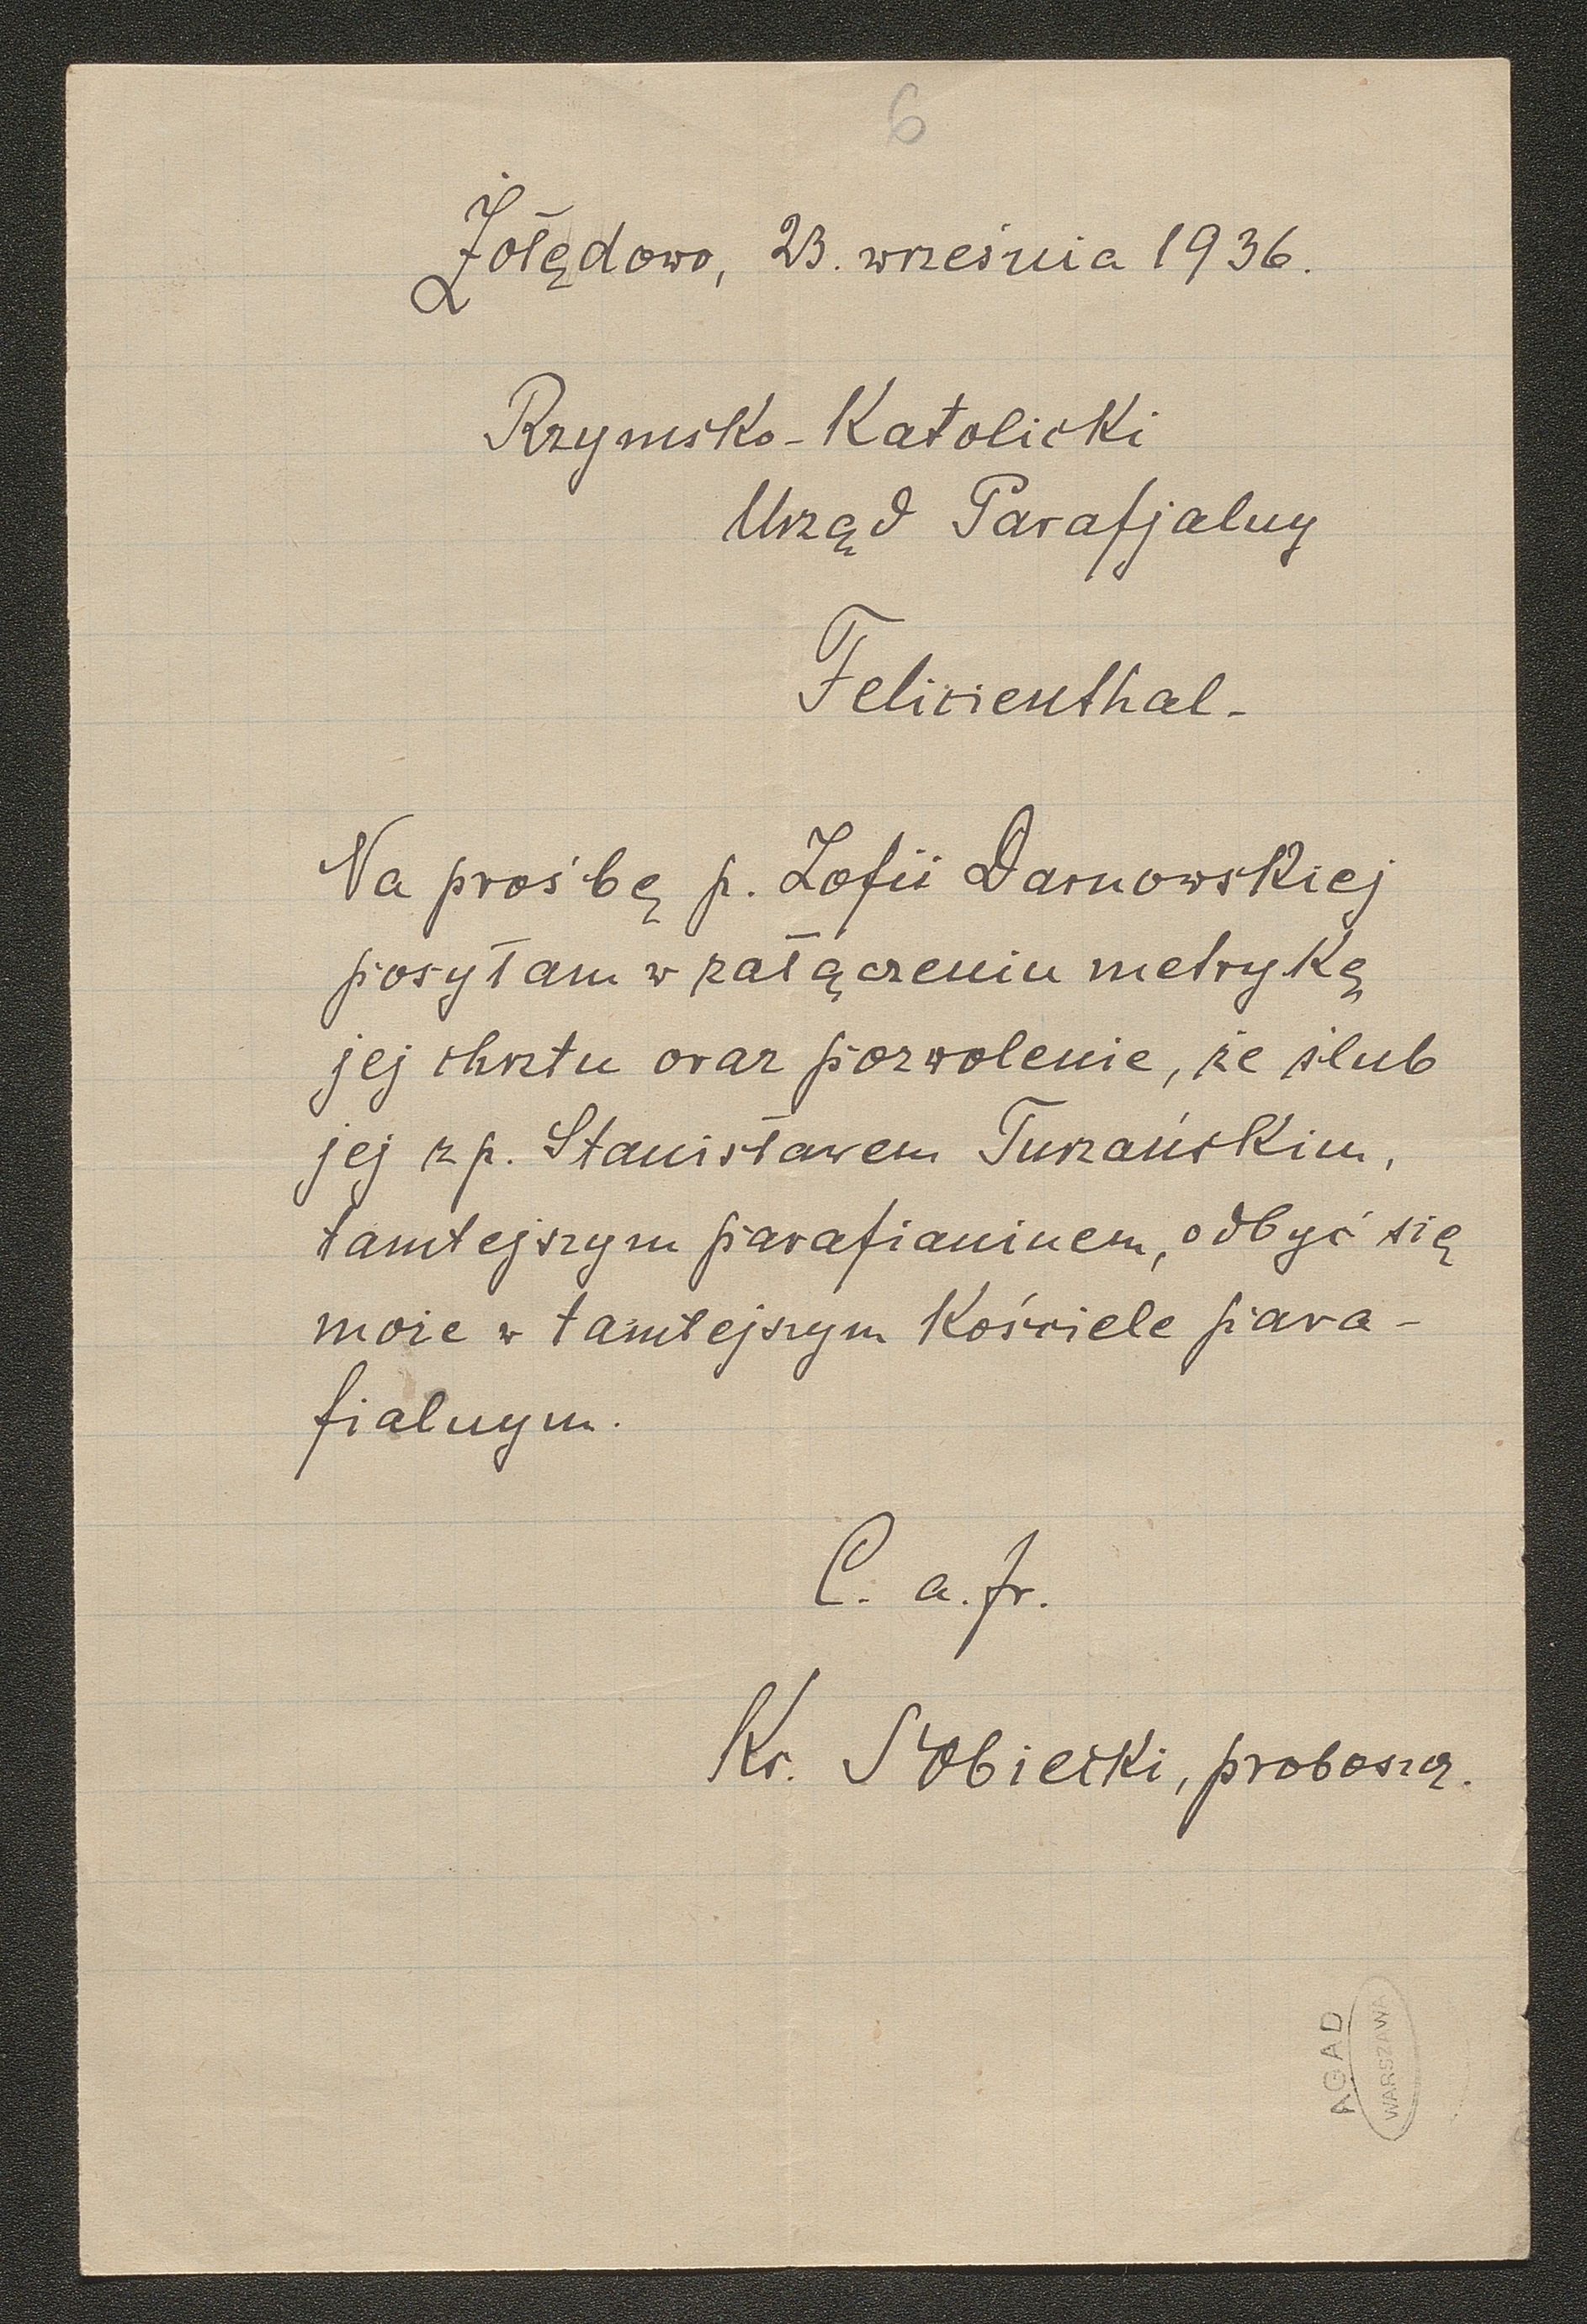 6
Żołędowo, 23. września 1936.
Rzymsko-Katolicki
Urząd Parafjalny
Felicienthal-
Na prośbę p. Zofii Darnowskiej
posyłam w załączeniu metrykę
jej chrztu oraz pozwolenie, że ślub
jej z p. Stanisławem Turzańskim,
tamtejszym parafianinem, odbyć się
może w tamtejszym Kościele para-
fialnym.
C. a. fr.
Ks. Sobiecki, proboszcz.
AGAD
WARSZAWA